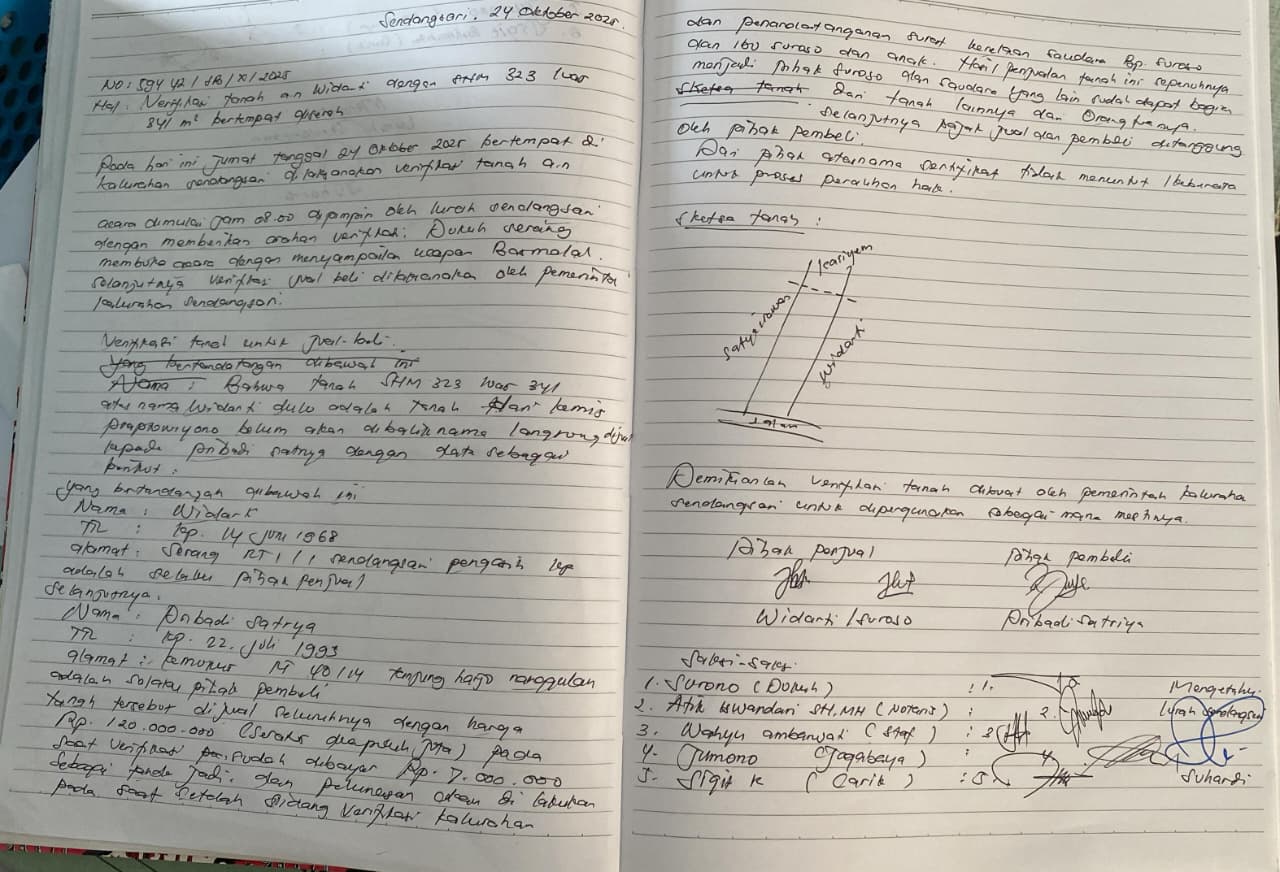 Sendangsari, 24 Oktober 2025.
NO: 594 42 / SB / X / 2025
Hal: Verifikasi tanah an Widarti dengan SHM 323 luas
341 m² bertempat
Pada hari ini Jumat tanggal 24 Oktober 2025 bertempat di
kalurahan sendangsari dilaksanakan verifikasi tanah a.n
acara dimulai jam 08.00 dipimpin oleh lurah sendangsari
dengan memberikan arahan verifikasi. Dukuh serang
membuka acara dengan menyampaikan ucapan Basmalah.
selanjutnya verifikasi jual beli dilaksanakan oleh pemerintah
kalurahan sendangsari.
Verifikasi tanah untuk jual-beli.
yang bertandatangan dibawah ini
Nama : Bahwa tanah SHM 323 luas 341
atas nama Widarti dulu adalah tanah dari kemis
praptowiyono belum akan dibalik nama langsung dijual
kepada pribadi satrya dengan data sebagai
berikut :
yang bertandangan dibawah ini
Nama : Widarti
TTL : kp. 14 Juni 1968
alamat : Serang RT 1 / 1 sendangsari pengasih kp
adalah selaku pihak penjual
Selanjutnya.
Nama : Pribadi Satrya
TTL : kp. 22. Juli 1993
alamat : kemukus RT 40/14 tanjung harjo nanggulan
adalah selaku pihak pembeli
tanah tersebut dijual seluruhnya dengan harga
Rp. 120.000.000 (Seratus duapuluh juta) pada
saat verifikasi sudah dibayar Rp. 7.000.000
sebagai tanda jadi dan pelunasan akan di lakukan
pada saat setelah sidang verifikasi kalurahan
dan penandatanganan surat kerelaan saudara Bp. suroso
dan ibu suroso dan anak. Hasil penjualan tanah ini sepenuhnya
menjadi pihak suroso dan saudara yang lain sudah dapat bagian
sketsa tanah dari tanah lainnya dari orang tuanya.
Selanjutnya pajak jual dan pembeli ditanggung
oleh pihak pembeli.
Dari pihak atasnama sertifikat tidak menuntut / keberatan
untuk proses peralihan hak.
Sketsa tanah :
kariyem
satyairawan
widarti
Jalan
Demikianlah verifikasi tanah dibuat oleh pemerintah kalurahan
sendangsari untuk dipergunakan sebagai mana mestinya.
Pihak penjual Pihak pembeli
Widarti / suroso Pribadi satriya
Saksi-saksi.
1. Surono (Dukuh) : 1.
2. Atik Iswandari SH, MH (Notaris) : 2.
3. Wahyu ambarwati (Staf) : 3
4. Jumono (Jagabaya) 4
5. Sigit k (Carik) : 5
Mengetahui
Lurah Sendangsari
Suhardi